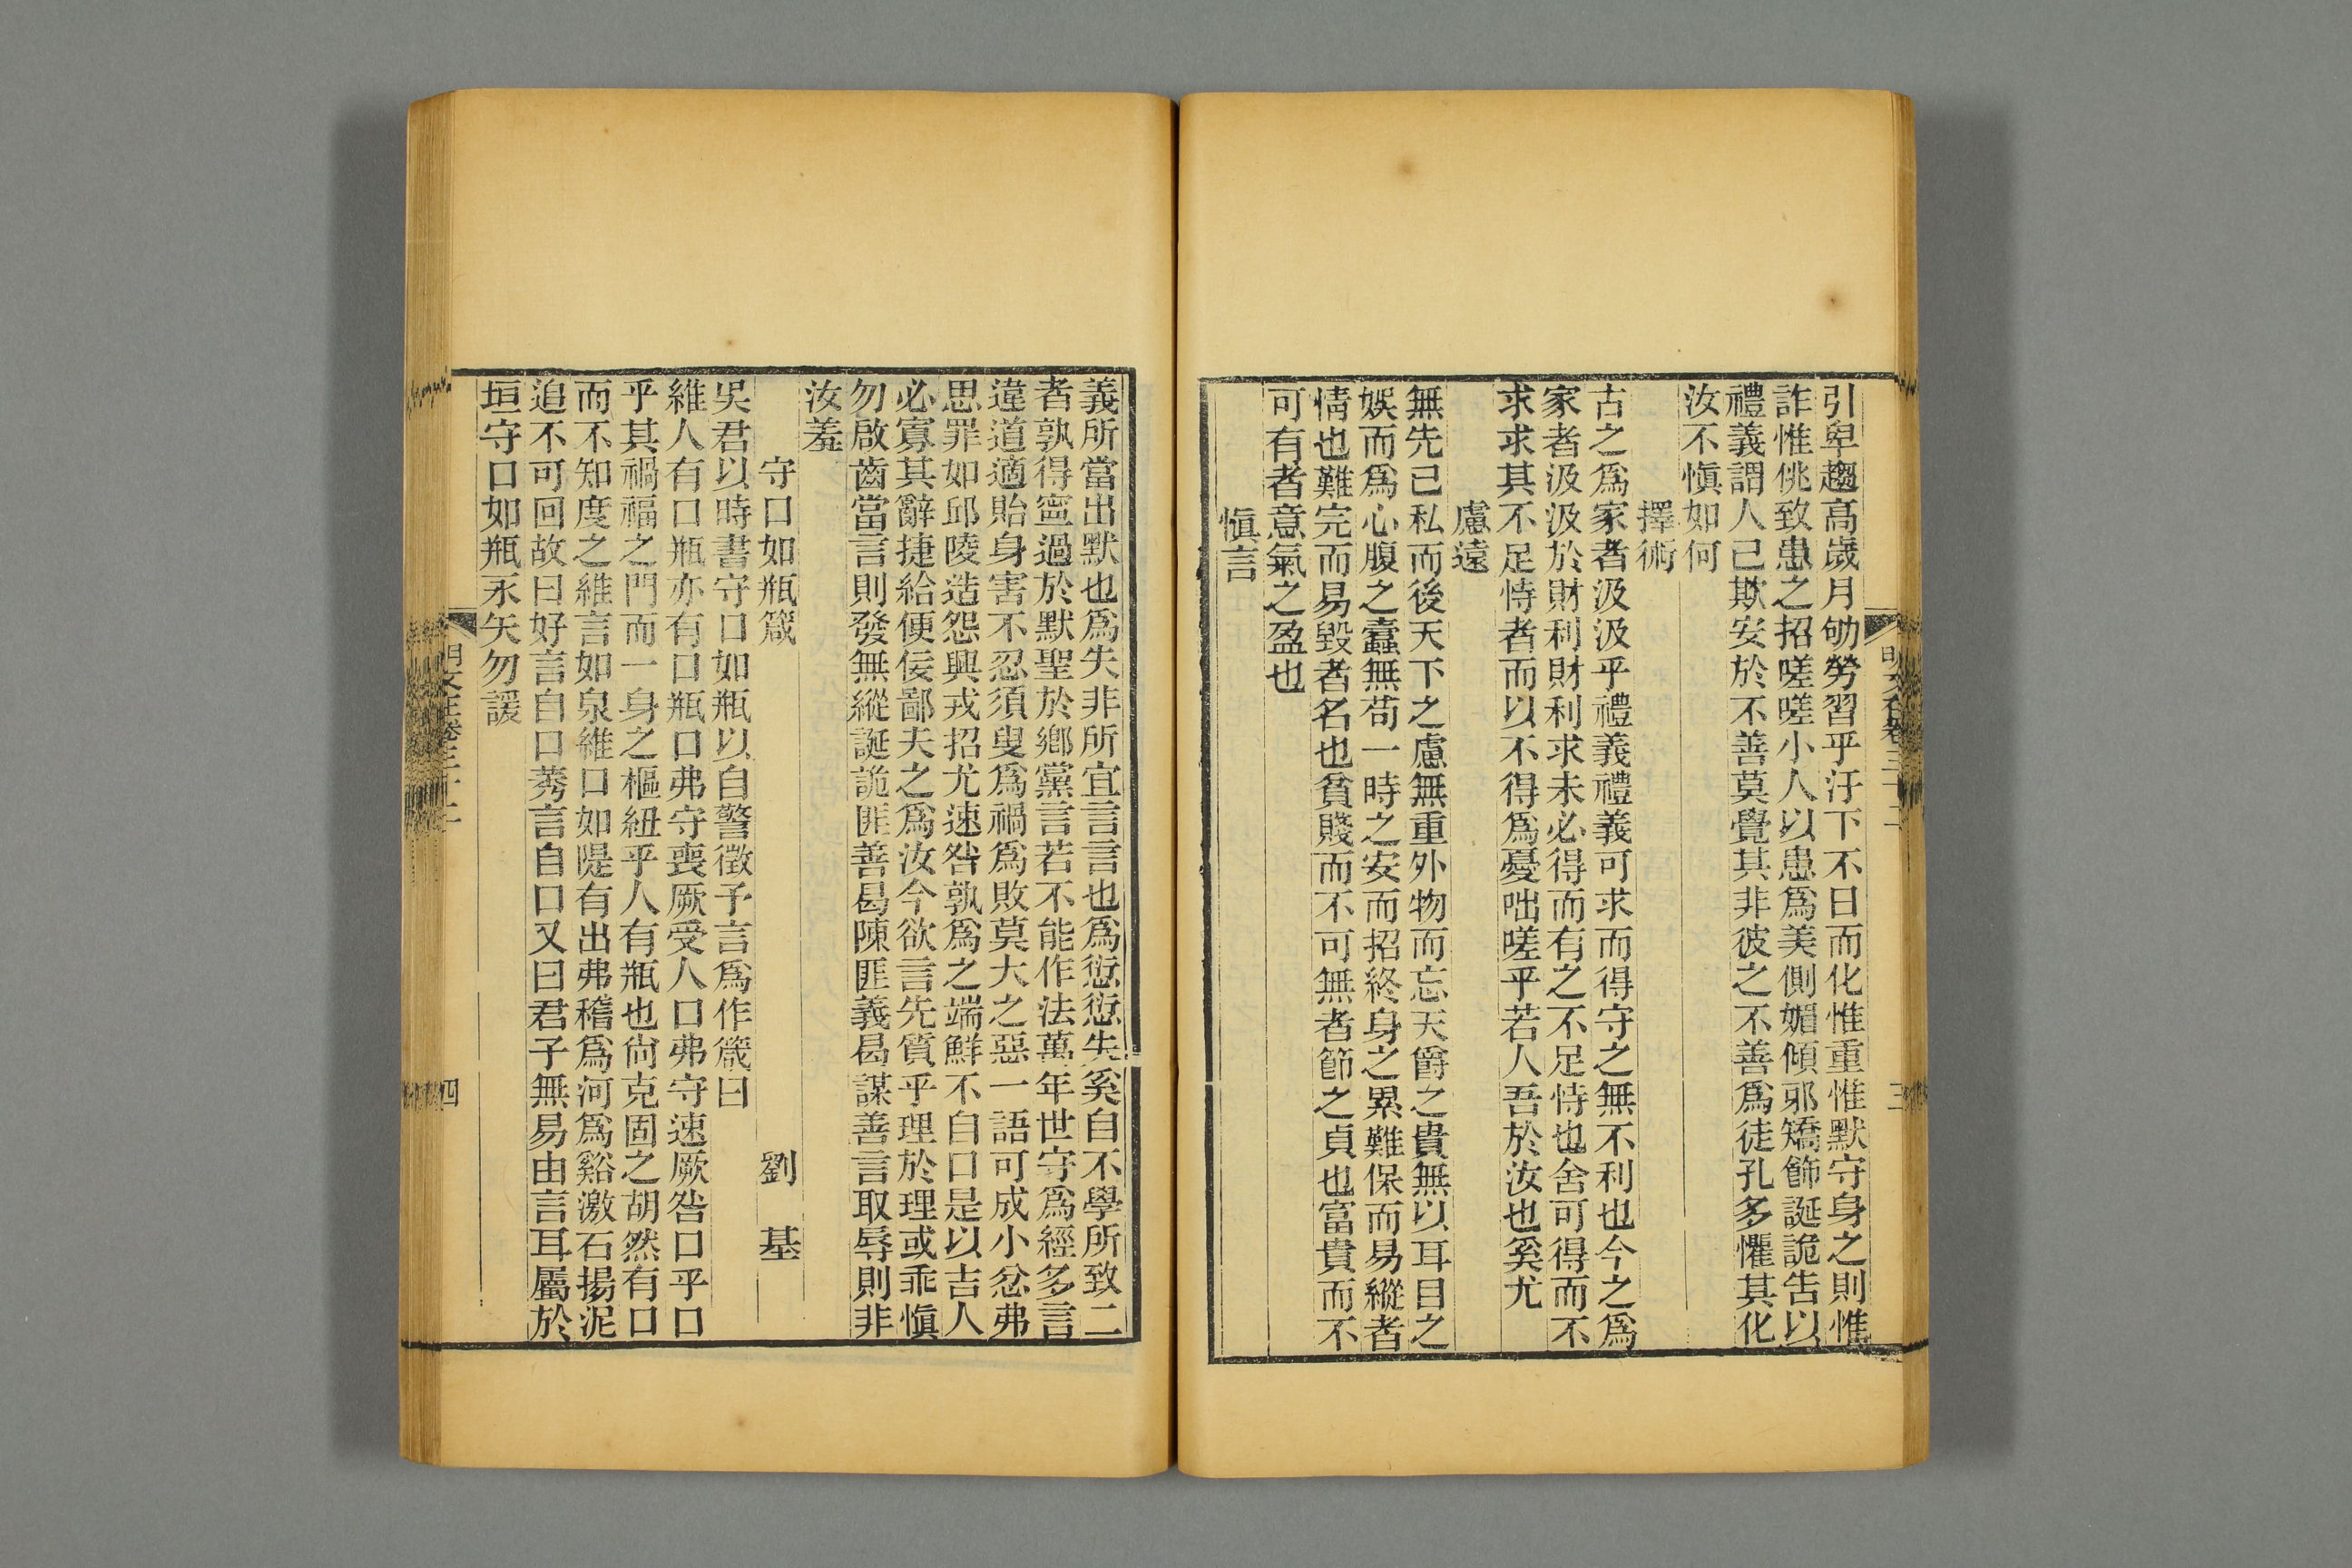 引卑趨高歲月劬勞習乎汙下不日而化惟重惟默守身之則惟
詐惟佻致患之招嗟嗟小人以患爲美側媚傾邪矯飾誕詭告以
禮義謂人己欺安於不善莫覺其非彼之不善爲徒孔多懼其化
汝不愼如何
擇術
古之爲家者汲汲乎禮義禮義可求而得守之無不利也今之爲
家者汲汲於財利財利求未必得而有之不足恃也舍可得而不
求求其不足恃者而以不得爲憂咄嗟乎若人吾於汝也奚尤
慮遠
無先己私而後天下之慮無重外物而忘天爵之貴無以耳目之
娛而爲心腹之蠹無苟一時之安而招終身之累難保而易縱者
情也難完而易毀者名也貧賤而不可無者節之貞也富貴而不
可有者意氣之盈也
愼言
三
義所當出默也爲失非所宜言言也爲愆愆失奚自不學所致二
者孰得寧過於默聖於鄉黨言若不能作法萬年世守爲經多言
違道適貽身害不忍須臾爲禍爲敗莫大之惡一語可成小忿弗
思罪如邱陵造怨興戎招尤速咎孰爲之端鮮不自口是以吉人
必寡其辭捷給便佞鄙夫之爲汝今欲言先質乎理於理或乖愼
勿啟齒當言則發無縱誕詭匪善曷陳匪義曷謀善言取辱則非
汝羞
守口如瓶箴 劉基
吳君以時書守口如瓶以自警徵予言爲作箴曰
維人有口瓶亦有口瓶口弗守喪厥受人口弗守速厥咎口乎口
乎其禍福之門而一身之樞紐乎人有瓶也尙克固之胡然有口
而不知度之維言如泉維口如隄有出弗稽爲河爲谿激石揚泥
追不可回故曰好言自口莠言自口又曰君子無易由言耳屬於
垣守口如瓶永矢勿諼
四